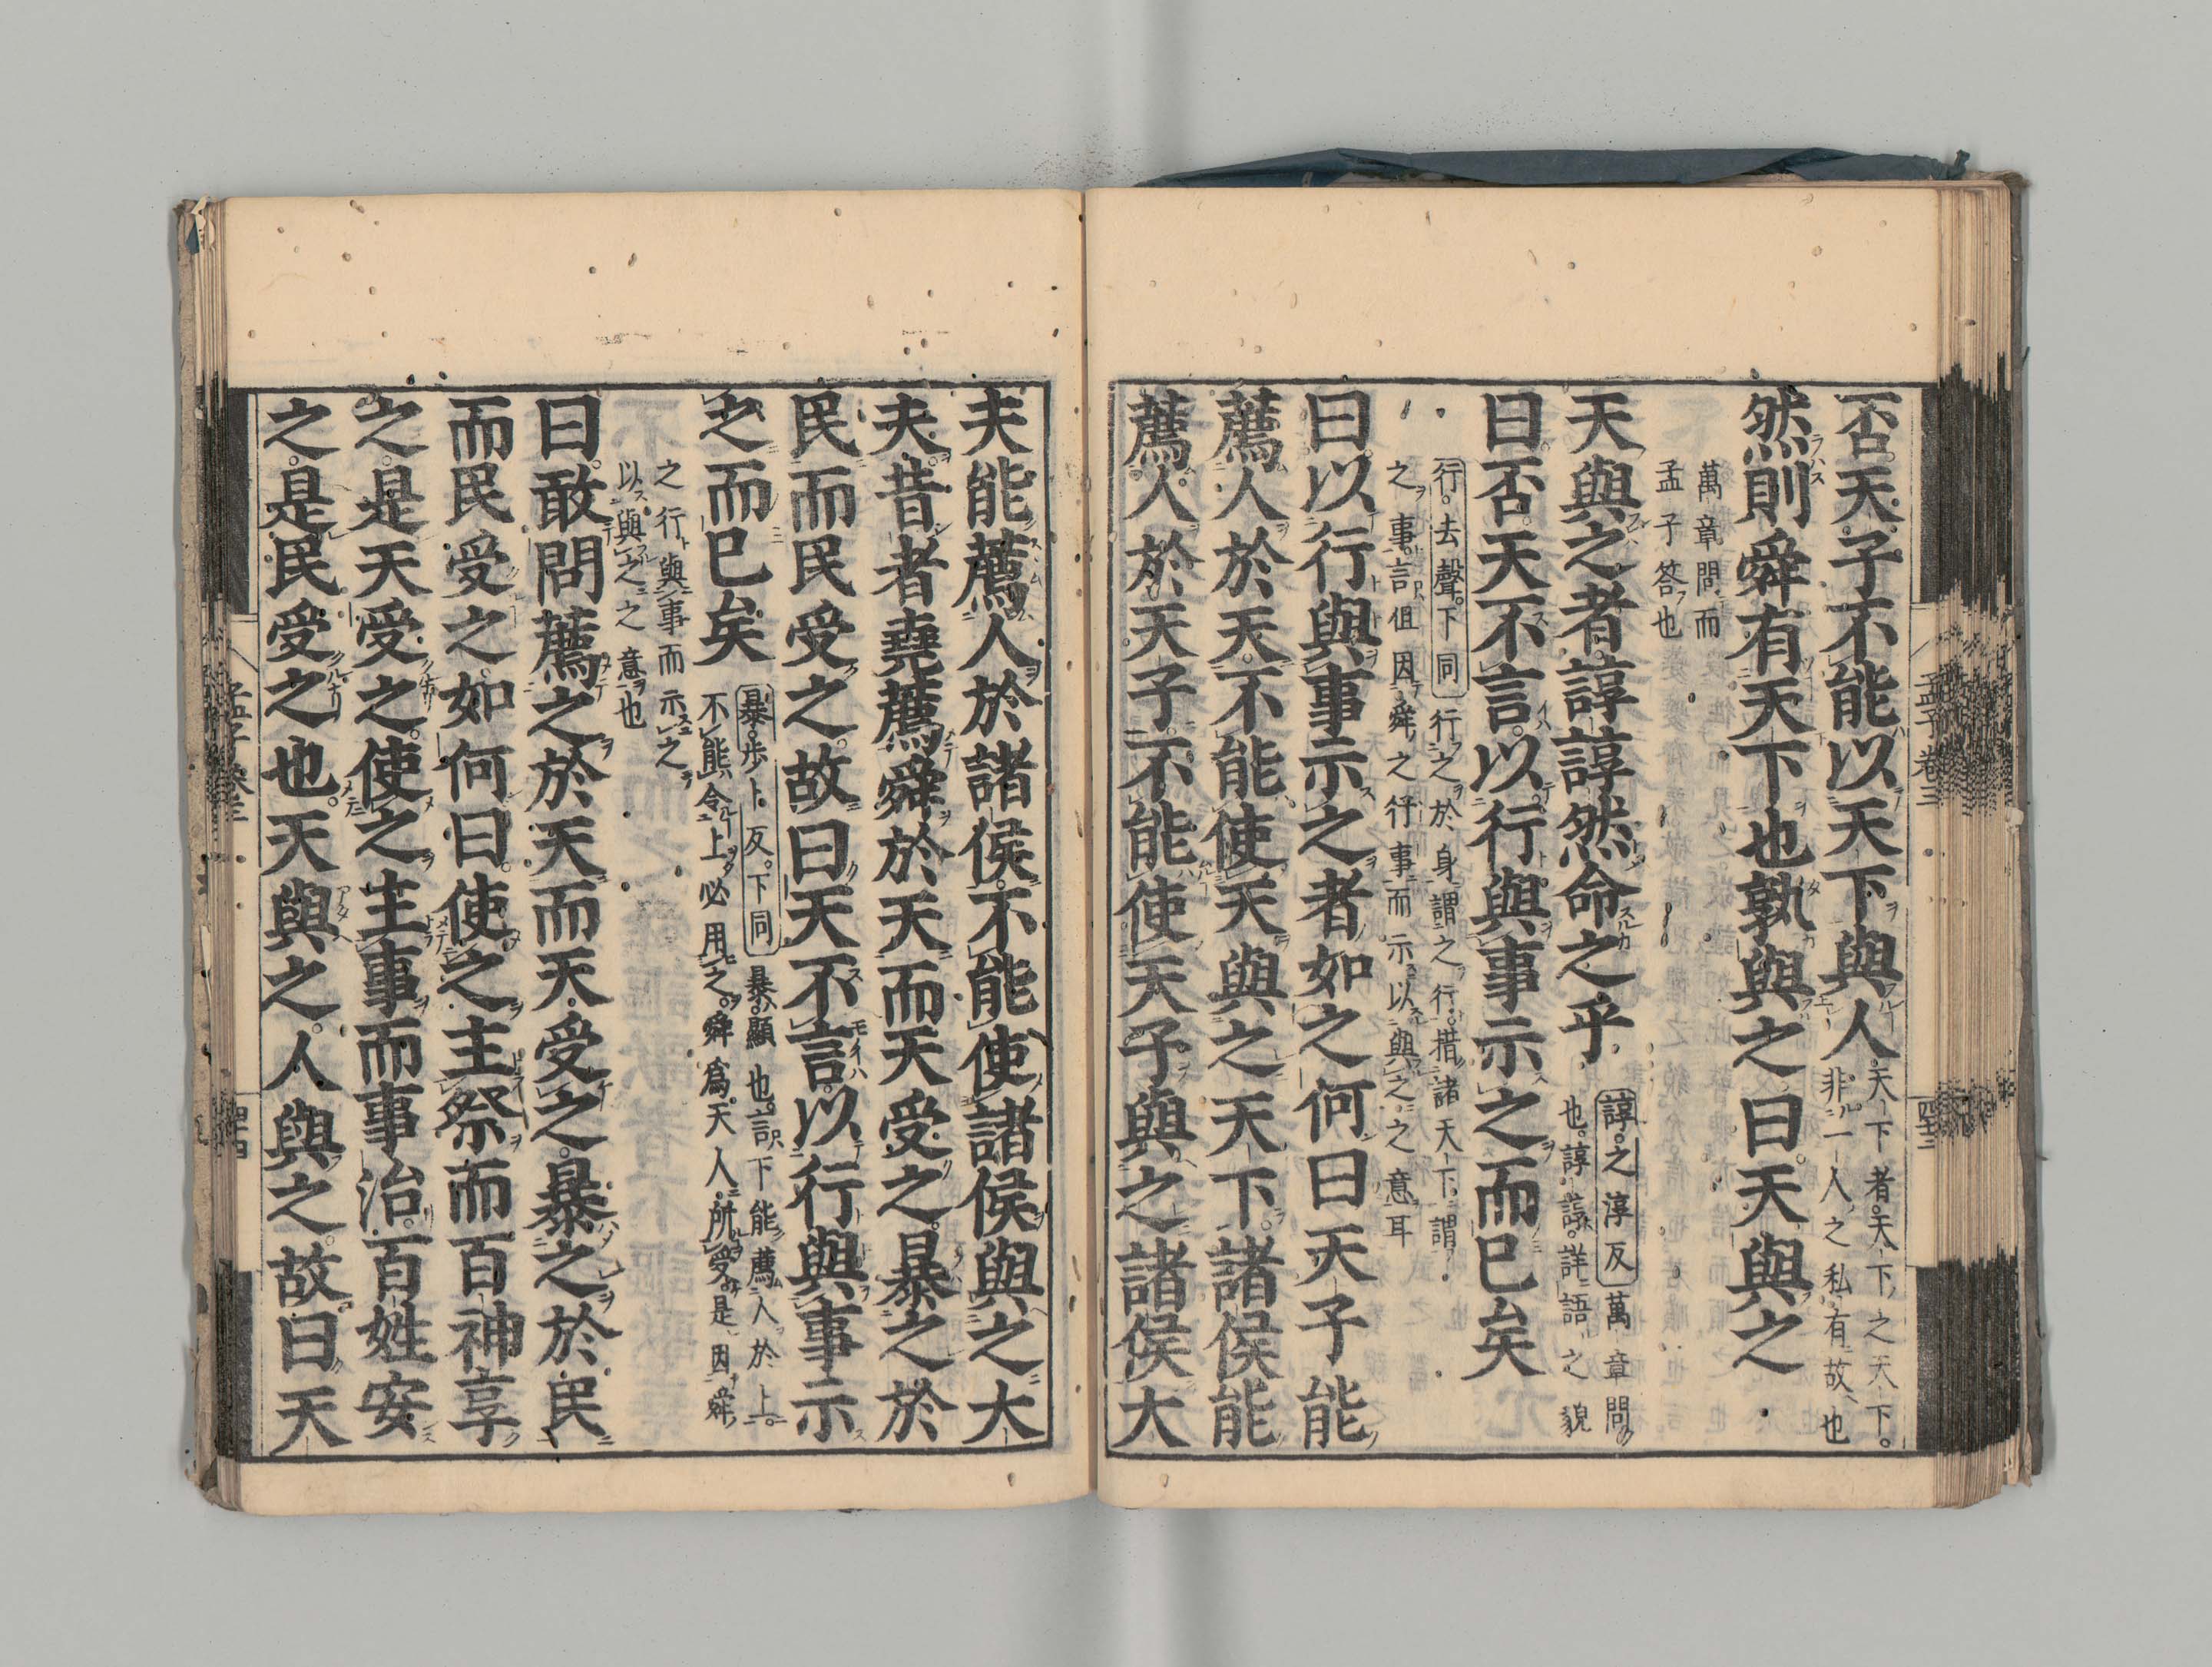 否天子不能以天下與人
天下者天下之天下
非一人之私有故也
然則舜有天下也孰與之曰天與之
萬章問而
孟子答也
天與之者諄諄然命之乎
諄之淳反萬章問
也諄諄詳語之貌
曰否天不言以行與事示之而已矣
行去聲下同行之於身謂之行措諸天下謂
之事言但因舜之行事而示以與之之意耳
曰以行與事示之者如之何曰天子能
薦人於天不能使天與之天下諸侯能
薦人於天子不能使天子與之諸侯大
孟子卷三
四十三
夫能薦人於諸侯不能使諸侯與之大
夫昔者堯薦舜於天而天受之暴之於
民而民受之故曰天不言以行與事示
之而已矣
暴步卜反下同暴顯也言下能薦人於上
不能令上必用之舜爲天人所受是因舜
之行與事而示之
以與之之意也
曰敢問薦之於天而天受之暴之於民
而民受之如何曰使之主祭而百神享
之是天受之使之主事而事治百姓安
之是民受之也天與之人與之故曰天
孟子卷三
四十四